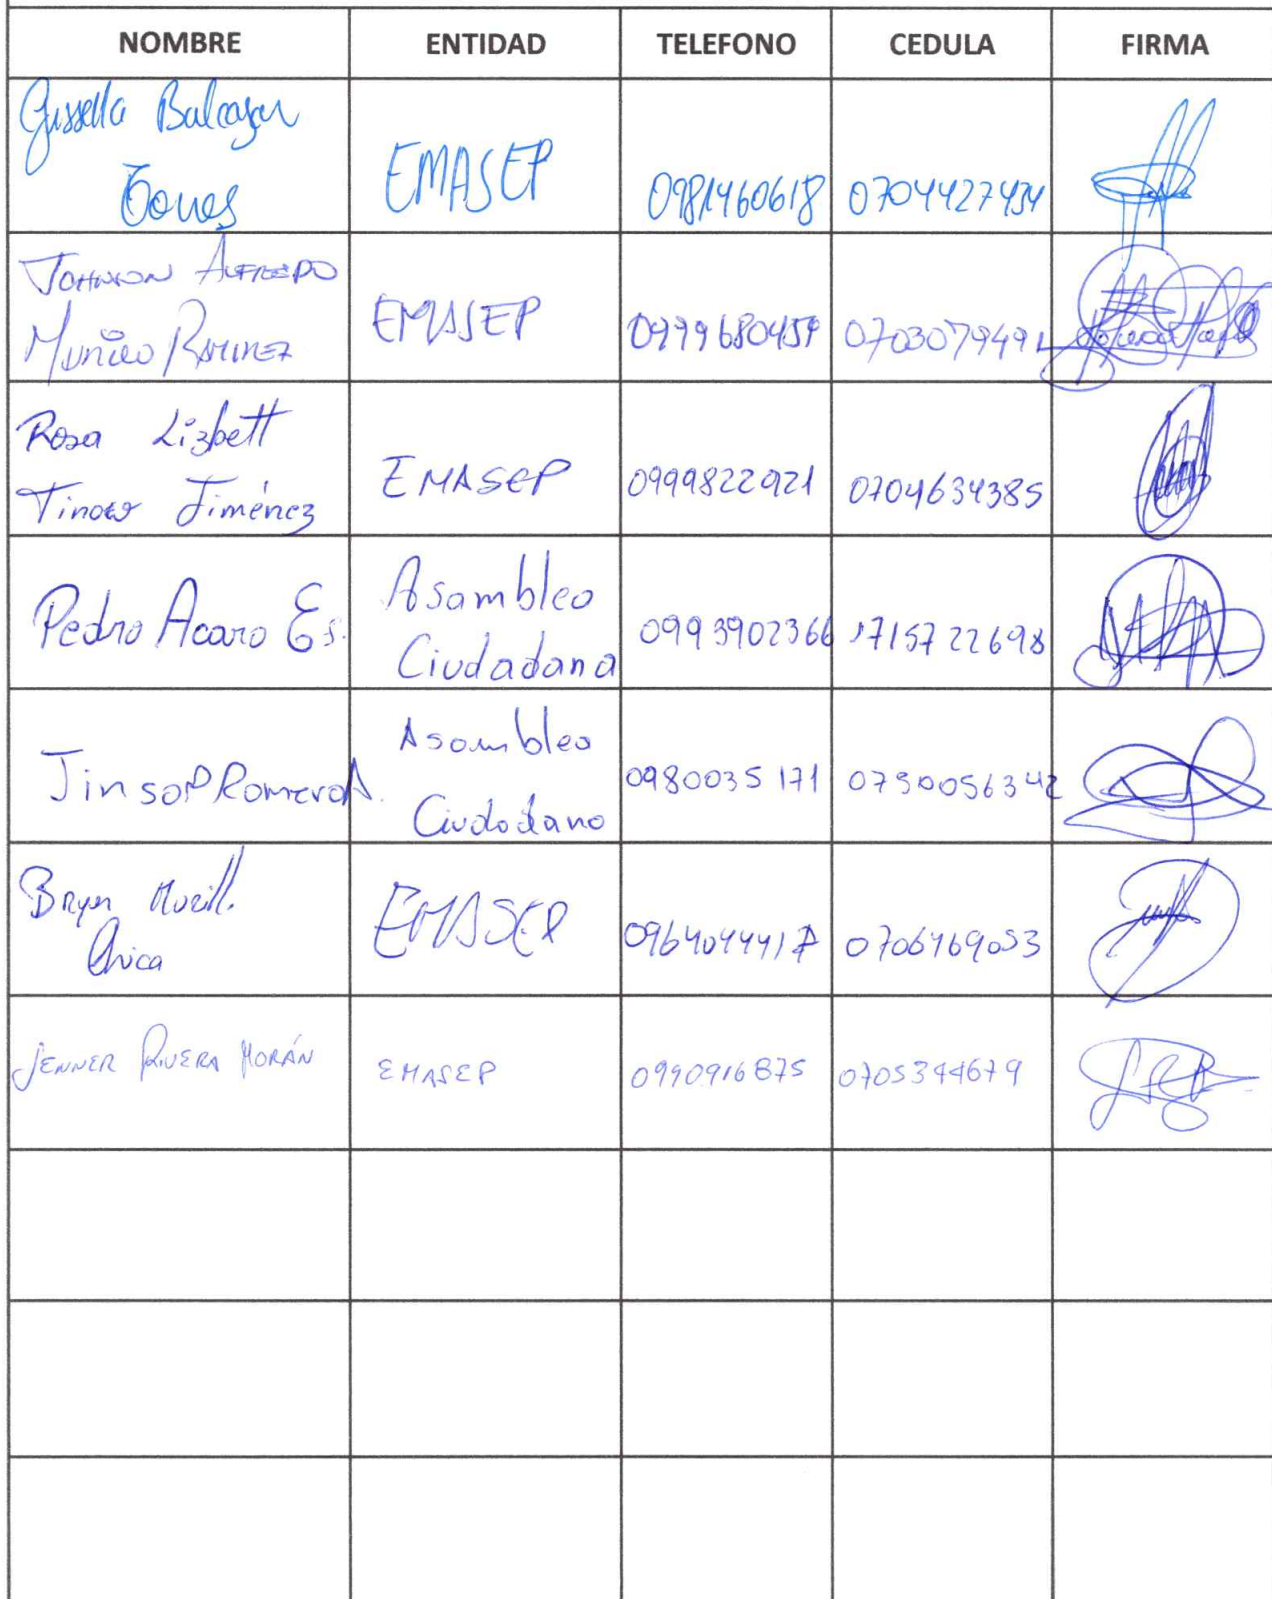 NOMBRE ENTIDAD TELEFONO CEDULA FIRMA
Gissella Balcazar
Torres
EMASEP 0981460618 0704427434
JOHNSON ALFREDO
MUNICO RAMIREZ
EMASEP 0999680459 0703079491
Rosa Lizbett
Tinoco Jiménez
EMASEP 0999822921 0704634385
Pedro Acaro Es.
Asamblea
Ciudadana
0993902366 1715722698
Jinsop Romero A.
Asamblea
Ciudadana
0980035171 0750056342
Bryan Murill.
Chica
EMASEP 0964044417 0706469053
JENNER RIVERA MORÁN EMASEP 0990916875 0705344679